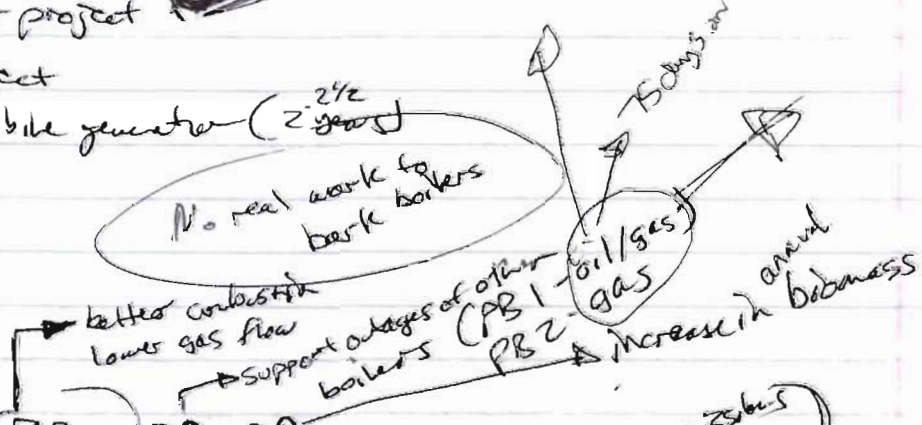 project
75 days
generation (2 2 1/2 years)
No real work to
bark boilers
better combustion
lower gas flow
support outages of other
boilers (PB1 - oil/gas)
PB2 - gas
increase in annual biomass